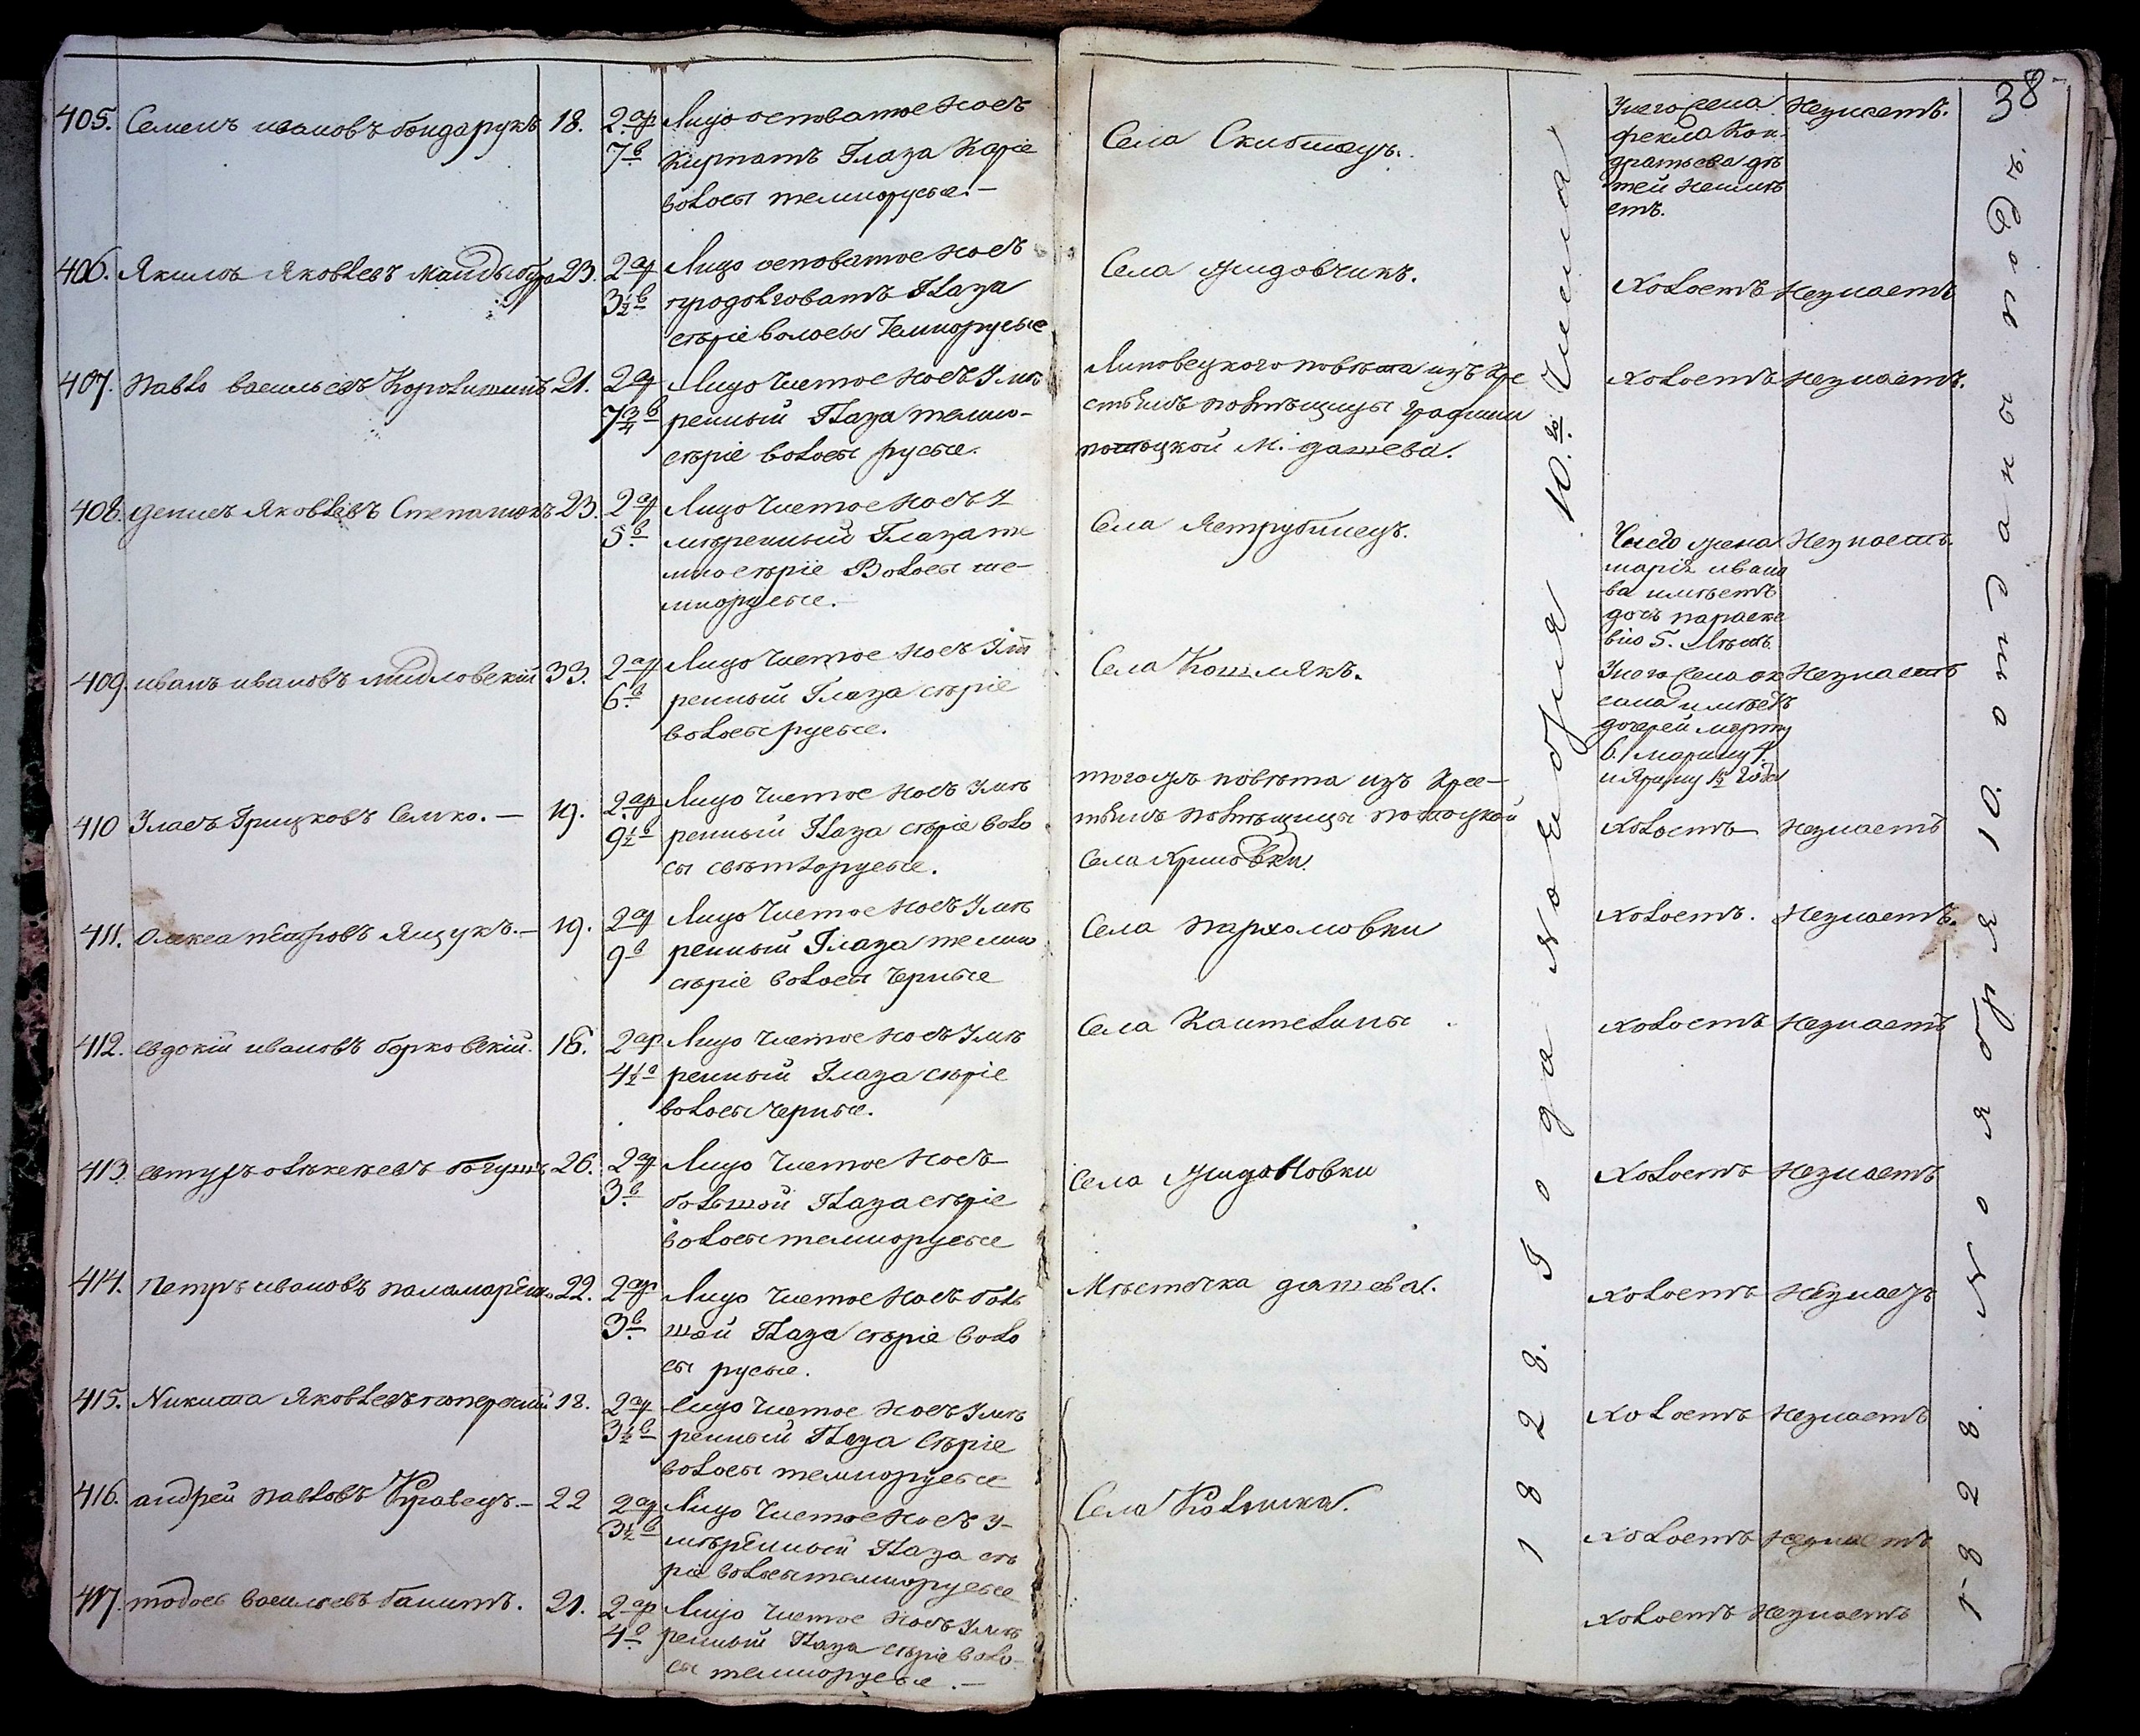 38
405. Семенъ ивановъ бондарукъ 18. 2 ар 7 в Лицо осповатое носъ
кирпатъ Глаза Каріе
волосы темнорусые. —
Села Скибинецъ.
фекла Кон-
дратьева дѣ
тей неимѣ
етъ.
Незнаетъ.
406. Якимъ Яковлевъ 23. 2 ар 3 1/2 в Лицо осповатое носъ
продолговатъ Глаза
сѣріе волосы Темнорусые
Села жидовчикъ.
Холостъ Незнаетъ
407. Павло васильевъ 21. 2 ар 7 3/4 в Лицо чистое носъ Умѣ
ренный Глаза темно-
сѣріе волосы русые.
Липовецкого повѣта изъ Кре
стьянъ помѣщицы Графини
потоцкой М. дашева.
Холостъ незнаетъ.
408. денисъ Яковлевъ Степанюкъ 23. 2 ар 5 в Лицо чистое носъ У
мѣренный Глаза те
мносѣріе Волосы те-
мнорусые. —
Села Яструбинецъ.
жена
марія ивано
ва имѣетъ
дочь параске
вію 5. лѣтъ.
Незнаетъ.
409. иванъ ивановъ 33. 2 ар 6 в Лицо чистое носъ Умѣ
ренный Глаза сѣріе
волосы русые.
Села Кошлякъ.
сана имѣетъ
дочерей марту
6. марину 4.
Незнаетъ
410 Власъ Грицковъ Семко. — 19. 2 ар 9 1/2 в Лицо чистое носъ Умѣ
ренный Глаза сѣріе воло
сы свѣтлорусые.
повѣта изъ Кре-
стьянъ помѣщицы потоцкой
Села
Холостъ незнаетъ
411. Олекса петровъ Ящукъ. — 19. 2 ар 9 в Лицо чистое носъ Умѣ
ренный Глаза темно
сѣріе волосы черные
Села пархомовки
Холостъ. Незнаетъ.
412. евдокій ивановъ борковскій. 18. 2 ар 4 1/2 в Лицо чистое носъ Умѣ
ренный Глаза сѣріе
волосы черные.
Села Кантелины
Холостъ Незнаетъ
413. 26. 2 ар 3 в Лицо чистое носъ
большой Глаза сѣріе
волосы темнорусые
Села
Холостъ Незнаетъ
414. Петръ ивановъ 22. 2 ар 3 в Лицо чистое носъ боль
шой Глаза сѣріе воло
сы русые.
Мѣстечка дашева.
Холостъ Незнаетъ
415. Никита Яковлевъ 18. 2 ар 3 1/2 в Лицо чистое носъ Умѣ
ренный Глаза Сѣріе
волосы темнорусые
Холостъ Незнаетъ
416. андрей павловъ Кравецъ. — 22 2 ар 3 1/2 в Лицо чистое носъ у-
мѣренный Глаза сѣ
ріе волосы темнорусые
Села
Холостъ незнаетъ
417. тодось васильевъ 21. 2 ар 4 в Лицо чистое носъ Умѣ
ренный Глаза сѣріе воло-
сы темнорусые. —
Холостъ Незнаетъ
1828. Года Ноября 10.го Числа
1828. Ноября 10. отданы подъ.